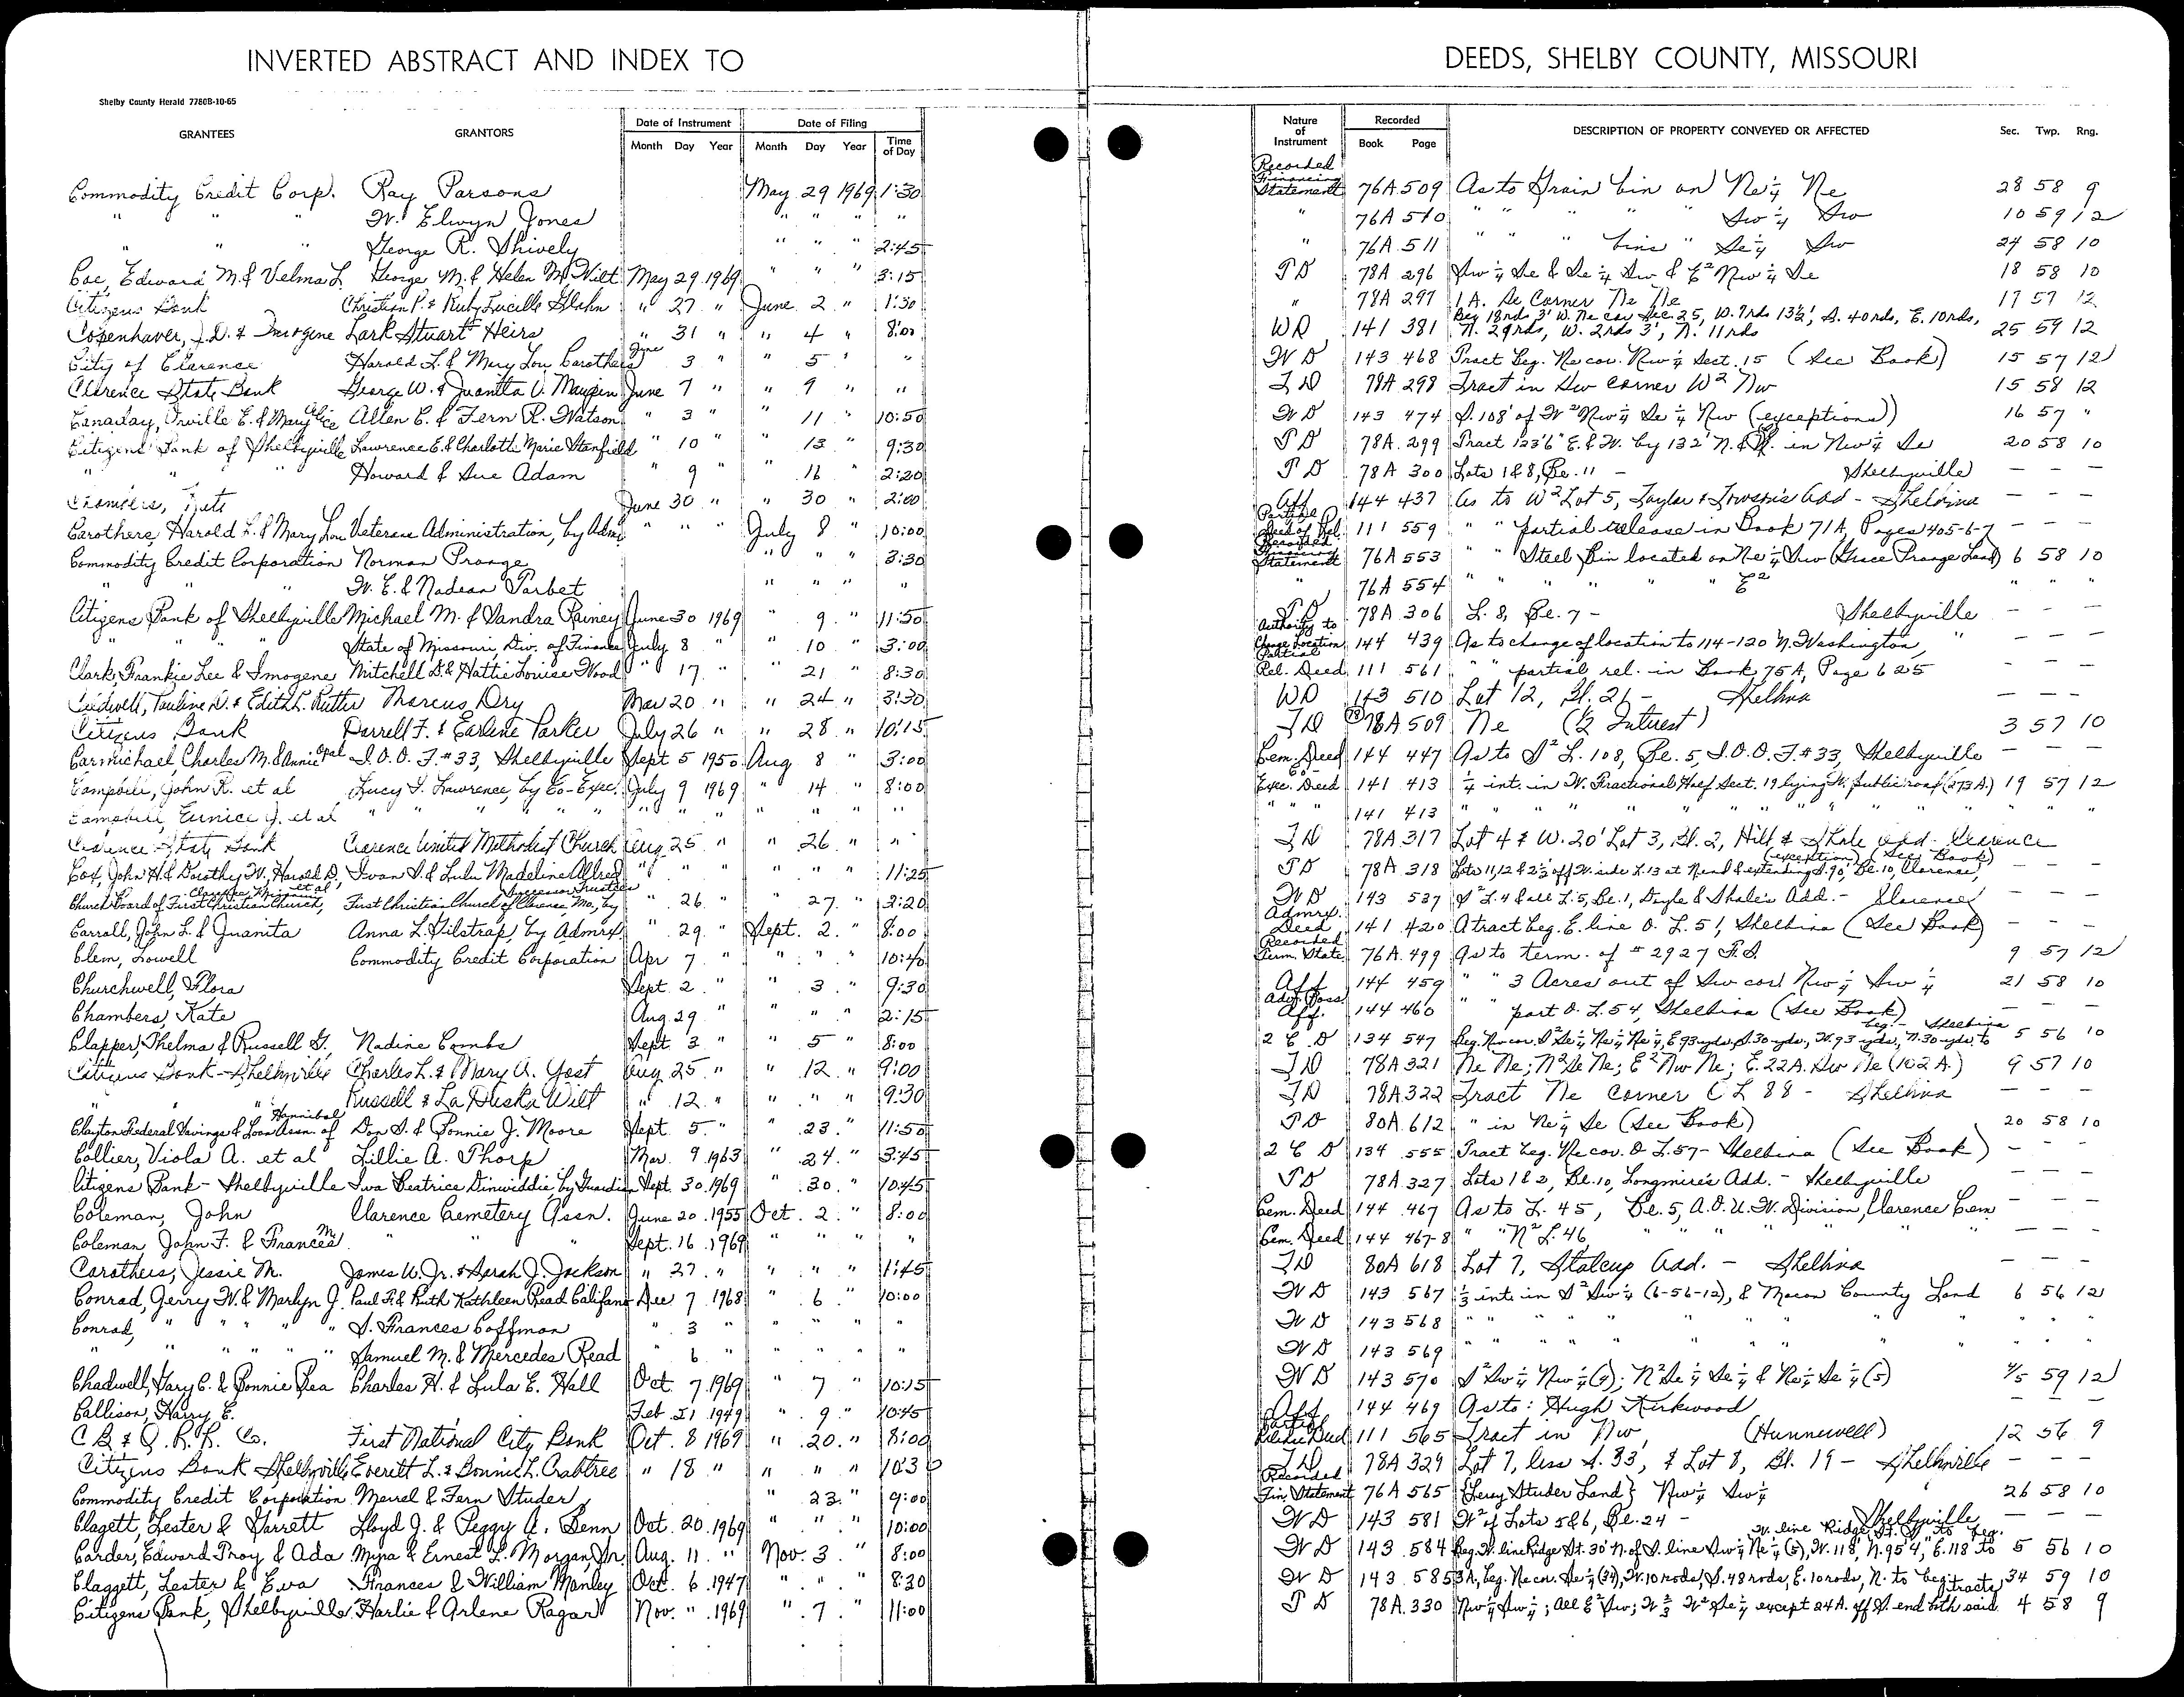 INVERTED ABSTRACT AND INDEX TO DEEDS, SHELBY COUNTY, MISSOURI
Shelby County Herald 7780B-10-65
GRANTEES GRANTORS Date of Instrument Date of Filing Time of Day Nature of Instrument Recorded DESCRIPTION OF PROPERTY CONVEYED OR AFFECTED Sec. Twp. Rng.
Month Day Year Month Day Year Book Page
Commodity Credit Corp. Ray Parsons May 29 1969 1:30 Recorded Financing Statement 76A 509 As to Grain bin on Ne ¼ Ne 28 58 9
" " " W. Elwyn Jones " " " " " 76A 510 " " " " Sw ¼ Sw 10 59 12
" " " George R. Shively " " " 2:45 " 76A 511 " " " bins " Se ¼ Sw 24 58 10
Coe, Edward M. & Velma L. George M. & Helen M. Wilt May 29 1969 " " " 3:15 T D 78A 296 Sw ¼ Se & Se ¼ Sw & E² Nw ¼ Se 18 58 10
Citizens Bank Christian P. & Ruby Lucille Glahn " 27 " June 2 " 1:30 " 78A 297 1 A. Se Corner Ne Ne 17 57 12
Copenhaver, J.D. & Imogene Lark Stuart Heirs " 31 " " 4 " 8:00 WD 141 381 Beg 18rds 3' W. Ne cor Sec. 25, W. 9rds 13½', S. 40rds, E. 10rds, N. 29rds, W. 2rds 3', N. 11rds 25 59 12
City of Clarence Harold L. & Mary Lou Carothers June 3 " " 5 " " W D 143 468 Tract beg. Ne cor. Nw ¼ Sect. 15 (See Book) 15 57 12
Clarence State Bank George W. & Juanita V. Maupin June 7 " " 9 " " T D 78A 298 Tract in Sw corner W² Nw 15 58 12
Canaday, Orville E. & Mary Alice Allen C. & Fern R. Watson " 3 " " 11 " 10:50 W D 143 474 S. 108' of W² Nw ¼ Se ¼ Nw (exceptions) 16 57 "
Citizens Bank of Shelbyville Lawrence E. & Charlotte Marie Stanfield " 10 " " 13 " 9:30 T D 78A 299 Tract 123'6" E. & W. by 132' N. & S. in Nw ¼ Se 20 58 10
" " " Howard & Sue Adam " 9 " " 16 " 2:20 T D 78A 300 Lots 1 & 8, Bl. 11 - Shelbyville - - -
June 30 " " 30 " 2:00 Aff 144 437 As to W² Lot 5, Taylor & Towson's Add - Shelbina - - -
Carothers, Harold L. & Mary Lou Veterans Administration, by Adm. " " " July 8 " 10:00 Partial Deed of Rel. 111 559 " " partial release in Book 71A, Pages 405-6-7 - - -
Commodity Credit Corporation Norman Prange " " " 3:30 Recorded Financing Statement 76A 553 " " Steel Bin located on Ne ¼ Sw (Grace Prange Land) 6 58 10
W. E. & Nadean Tarbet " " " " " 76A 554 " " " " " E² " " "
Citizens Bank of Shelbyville Michael M. & Sandra Rainey June 30 1969 " 9 " 11:50 T D 78A 306 L. 8, Bl. 7 - Shelbyville - - -
" " " State of Missouri, Div. of Finance July 8 " " 10 " 3:00 Authority to Change Location 144 439 As to change of location to 114-120 N. Washington, " - - -
Clark, Frankie Lee & Imogene Mitchell D. & Hattie Louise Wood " 17 " " 21 " 8:30 Partial Rel. Deed 111 561 " " partial rel. in Book 75A, Page 625 - - -
Pauline D. & Edith L. Rutter Marcus Dry Mar 20 " " 24 " 3:30 WD 143 510 Lot 12, Bl. 26 - Shelbina - - -
Citizens Bank Darrell F. & Earline Parker July 26 " " 28 " 10:15 T D 78A 509 Ne (½ Interest) 3 57 10
Carmichael, Charles M. & Annie Opal I.O.O.F. #33, Shelbyville Sept 5 1950 Aug 8 " 3:00 Cem. Deed 144 447 As to S² L. 108, Bl. 5, I.O.O.F. #33, Shelbyville - - -
Campbell, John R. et al Lucy F. Lawrence, by Co-Exec. July 9 1969 " 14 " 8:00 Co-Exec. Deed 141 413 ¼ int. in W. Fractional Half Sect. 19 lying W. public road (273 A.) 19 57 12
Campbell, Eunice J. et al " " " " " " " " " " " " 141 413 " " " " " " " " "
Clarence State Bank Clarence United Methodist Church Aug 25 " " 26 " " T D 78A 317 Lot 4 & W. 20' Lot 3, Bl. 2, Hill & Shale Add. Clarence
Cox, John H. & Dorothy W., Harold D. et al Ivan S. & Lula Madeline Allred " " " " " " 11:25 T D 78A 318 Lots 11, 12 & 2½' off W. side L. 13 at N end & extending S. 90', Bl. 10, Clarence, (exception) (See Book) - - -
Church Board of First Christian Church, Clarence, Missouri First Christian Church of Clarence, Mo., by Successor Trustees " 26 " " 27 " 3:20 W D 143 537 S² L. 4 & all L. 5, Bl. 1, Doyle & Shale's Add. - Clarence - - -
Carroll, John L. & Juanita Anna L. Gilstrap, by Admrx " 29 " Sept. 2 " 8:00 Admrx. Deed 141 420 A tract beg. E. line O. L. 51, Shelbina (See Book) - - -
Clem, Lowell Commodity Credit Corporation Apr 7 " " " " 10:40 Recorded Term. State. 76A 499 As to term. of #2927 F.S. 9 57 12
Churchwell, Flora Sept. 2 " " 3 " 9:30 Aff 144 459 " " 3 Acres out of Sw cor Nw ¼ Sw ¼ 21 58 10
Chambers, Kate Aug 29 " " " 2:15 Adv. Poss. Aff. 144 460 " " part O. L. 54, Shelbina (See Book) - - -
Clapper, Thelma & Russell G. Nadine Combs Sept. 3 " " 5 " 8:00 2 C. D 134 547 Beg. Nw cor. S² Se ¼ Ne ¼ Ne ¼, E 93 yds, S. 30 yds., W. 93 yds., N. 30 yds. to beg. - Shelbina 5 56 10
Citizens Bank - Shelbyville Charles L. & Mary A. Yost Aug 25 " " 12 " 9:00 T D 78A 321 Ne Ne; N² Se Ne; E² Nw Ne; E. 22A. Sw Ne (102 A.) 9 57 10
" " Russell & LaDuska Wilt " 12 " " " " 9:30 T D 78A 322 Tract Ne Corner O L 88 - Shelbina - - -
Clayton Federal Savings & Loan Assn. of Hannibal Don S. & Bonnie J. Moore Sept. 5 " " 23 " 11:50 T D 80A 612 " in Ne ¼ Se (See Book) 20 58 10
Collier, Viola A. et al Lillie A. Thorp Mar. 9 1963 " 24 " 3:45 2 C D 134 555 Tract beg. Ne cor. O L. 57 - Shelbina (See Book) - - -
Citizens Bank - Shelbyville Iva Beatrice Dinwiddie by Guardian Sept. 30 1969 " 30 " 10:45 T D 78A 327 Lots 1 & 2, Bl. 10, Longmire's Add. - Shelbyville
Coleman, John Clarence Cemetery Assn. June 20 1955 Oct. 2 " 8:00 Cem. Deed 144 467 As to L. 45, Bl. 5, A.O.U.W. Division, Clarence Cem - - -
Coleman, John F. & Frances M. " " " Sept. 16 1969 " " " " Cem. Deed 144 467-8 " " N² L. 46, " " " " " - - -
Carothers, Jessie M. James W. Jr. & Sarah J. Jackson " 27 " " " " 1:45 T D 80A 618 Lot 7, Stalcup Add. - Shelbina - - -
Conrad, Gerry W. & Marlyn J. Paul F. & Ruth Kathleen Read Califano Dec 7 1968 " 6 " 10:00 W D 143 567 ⅓ int. in S² Sw ¼ (6-56-12), & Macon County Land 6 56 12
Conrad, " " " " " S. Frances Coffman " 3 " " " " " W D 143 568 " " " " " " " " " "
" " " " " " Samuel M. & Mercedes Read " 6 " " " " " W D 143 569 " " " " " " " " " "
Chadwell, Gary C. & Bonnie Rea Charles H. & Lula E. Hall Oct. 7 1969 " 7 " 10:15 W D 143 570 S² Sw ¼ Nw ¼ (4); N² Se ¼ Se ¼ & Ne ¼ Se ¼ (5) 4/5 59 12
Callison, Harry E. Feb 21 1949 " 9 " 10:45 Aff 144 469 As to: Hugh Kirkwood - - -
C B & Q. R. R. Co. First National City Bank Oct. 8 1969 " 20 " 8:00 Partial Release Deed 111 565 Tract in Nw, (Hunnewell) 12 56 9
Citizens Bank Shelbyville Everett L. & Bonnie L. Crabtree " 18 " " " " 10:30 T D 78A 329 Lot 7, less S. 33, & Lot 8, Bl. 19 - Shelbyville - - -
Commodity Credit Corporation Merrel & Fern Studer " 23 " 9:00 Recorded Fin. Statement 76A 565 {Leroy Studer Land} Nw ¼ Sw ¼ 26 58 10
Clagett, Lester & Garrett Lloyd J. & Peggy A. Benn Oct. 20 1969 " " " 10:00 W D 143 581 W² of Lots 5 & 6, Bl. 24 - Shelbyville - - -
Carder, Edward Troy & Ada Myra & Ernest L. Morgan, Jr. Aug. 11 " Nov. 3 " 8:00 W D 143 584 Beg. W. line Ridge St. 30' N. of S. line Sw ¼ Ne ¼ (5), W. 118', N. 95'4", E. 118' to W. line Ridge St. S. to beg. 5 56 10
Claggett, Lester & Eva Frances & William Manley Oct. 6 1947 " " " 8:30 W D 143 585 3A, beg. Ne cor. Se ¼ (34), W. 10 rods, S. 48 rods, E. 10 rods, N. to beg. 34 59 10
Citizens Bank, Shelbyville Harlie & Arlene Ragar Nov. " 1969 " 7 " 11:00 T D 78A 330 Nw ¼ Sw ¼; All E² Sw; W ⅔ W² Se ¼ except 24A. off S. end both said tracts 4 58 9